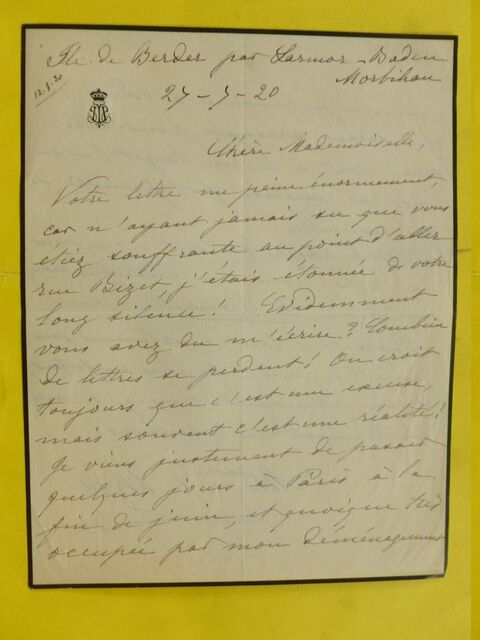 Ile de Berder par Larmor-Baden
Morbihan
12.8.20
27-7-20
Chère Mademoiselle,
Votre lettre me peine énormement,
car n'ayant jamais su que vous
étiez souffrante au point d'aller
rue Bizet, j'étais étonnée de votre
long silence! Evidemment
vous avez du m'écrire? Combien
de lettres se perdent! On croit
toujours que c'est une excuse,
mais souvent c'est une réalité!
Je viens justement de passer
quelques jours à Paris à la
fin de juin, et quoique très
occupée par mon déménagement